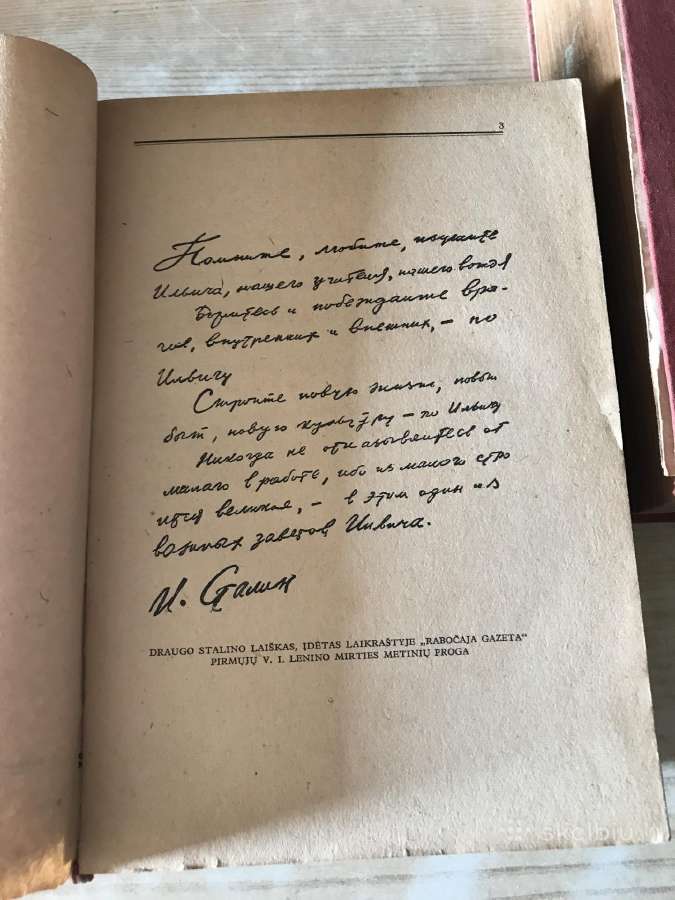 3
Помните, любите, изучайте
Ильича, нашего учителя, нашего вождя
Боритесь и побеждайте вра-
гов, внутренних и внешних, – по
Ильичу
Стройте новую жизнь, новый
быт, новую культуру – по Ильичу
Никогда не отказывайтесь от
малого в работе, ибо из малого стро
ится великое, – в этом один из
важных заветов Ильича.
И. Сталин
DRAUGO STALINO LAIŠKAS, ĮDĖTAS LAIKRAŠTYJE „RABOČAJA GAZETA“
PIRMŲJŲ V. I. LENINO MIRTIES METINIŲ PROGA
skelbiu.lt